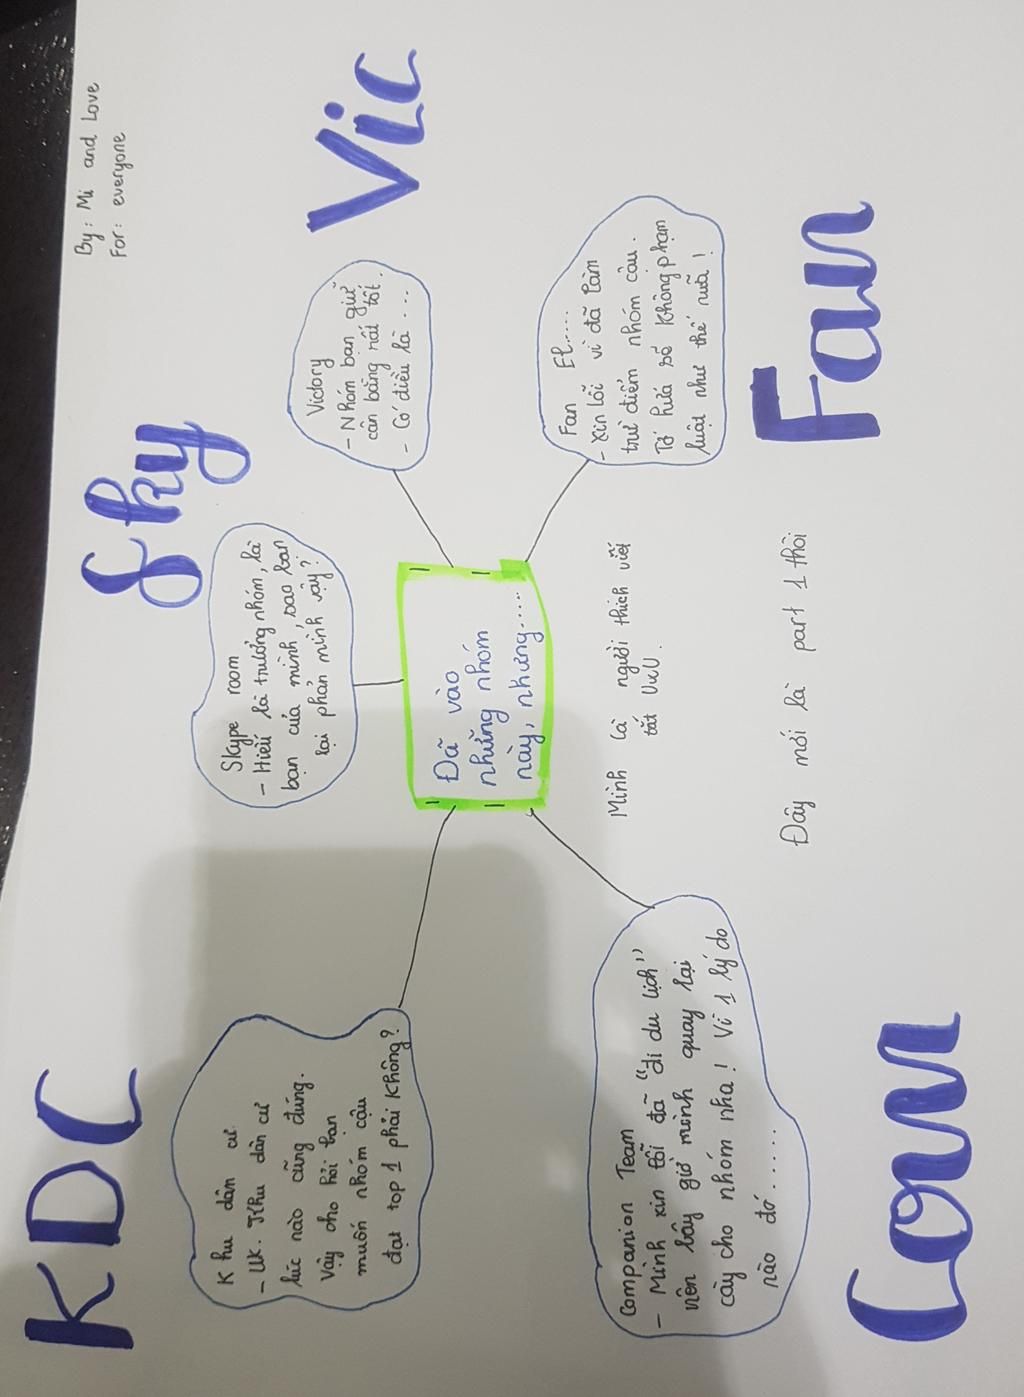 By: Mi and Love
For: everyone
KDC
Sky
Vic
Khu dân cư
- Uk. Khu dân cư
lúc nào cũng đúng.
Vậy cho hỏi bạn
muốn nhóm cậu
đạt top 1 phải không?
Skype room
- Hiếu là trưởng nhóm, là
bạn của mình, sao bạn
lại phản mình vậy?
Victory
- Nhóm bạn giữ
cân bằng rất tốt.
- Có điều là ....
Đã vào
những nhóm
này, nhưng.....
Companion Team
- Mình xin lỗi đã "đi du lịch"
nên bây giờ mình quay lại
cày cho nhóm nha! Vì 1 lý do
nào đó.......
Fan El.....
- Xin lỗi vì đã làm
trừ điểm nhóm cậu.
Tớ hứa sẽ không phạm
luật như thế nữa!
Mình là người thích viết
tắt UwU.
Đây mới là part 1 thôi
Com
Fan